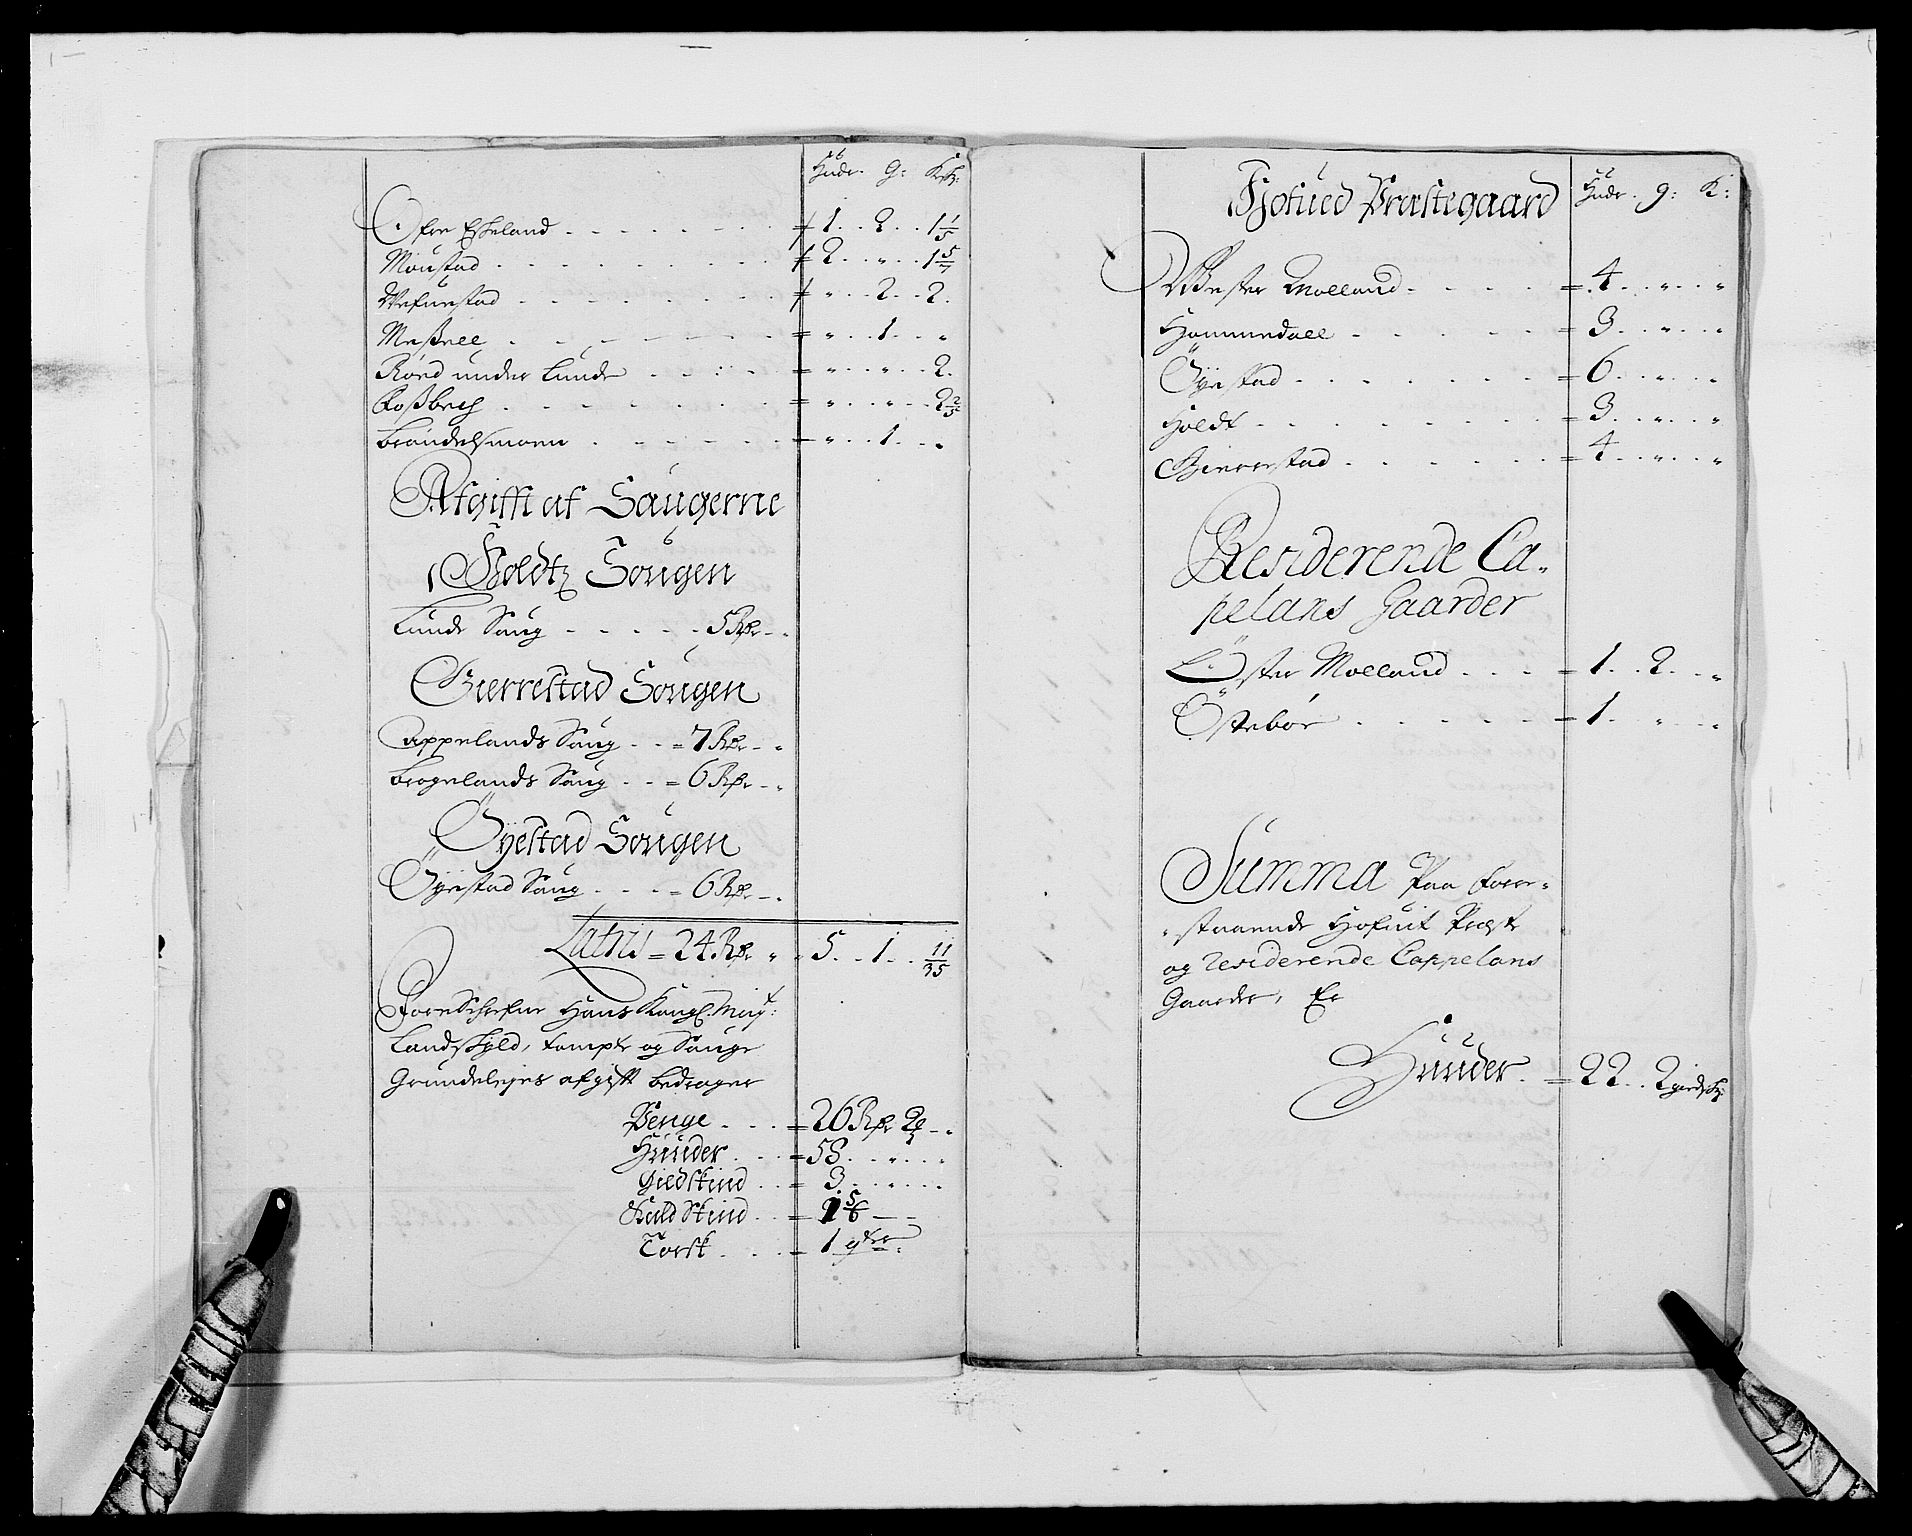 Hudr. g: Ksk:
Øfre Eskeland 1 2 1 1/5
Moustad 2 „ 1 5/7
Wefuestad „ 2 2
Meßell „ 1 „
Röed under Lunde „ „ 2
Roßbech „ „ 2 2/5
Bröndelsmoen „ 1 „
Afgifft af Saugerne
Holdtz Sougen
Lunde Saug 5 Rdr
Gierrestad Sougen
Eppelands Saug = 7 Rdr
Brogelands Saug = 6 Rdr
Öyestad Sougen
Öyestad Saug = 6 Rdr
Latus = 24 Rdr „ 5 1 11/35
ForeSchrefne Hans Kongl. Mayt:
Landskyld, tompte og Sauge
Grundelejes afgifft bedrager
Penge = 26 Rdr
Huuder = 58 „ „
Giedskind = 3 „ „
Kald Skind = 1 5/6
Torsk = 1
Hofued Præstegaard
Hudr. g: K:
Wester Molland = 4 „ „
Hommedall = 3 „ „
Öyestad = 6 „ „
Holdt = 3 „ „
Gierrestad = 4 „ „
Residerende Ca-
pelans Gaarder
Öster Molland = 1 2 „
Östebör = 1 „ „
Summa Paa Forre-
staaende Hofuit Præste
og residerende Cappelans
Gaarder, Er
Huuder = 22 2